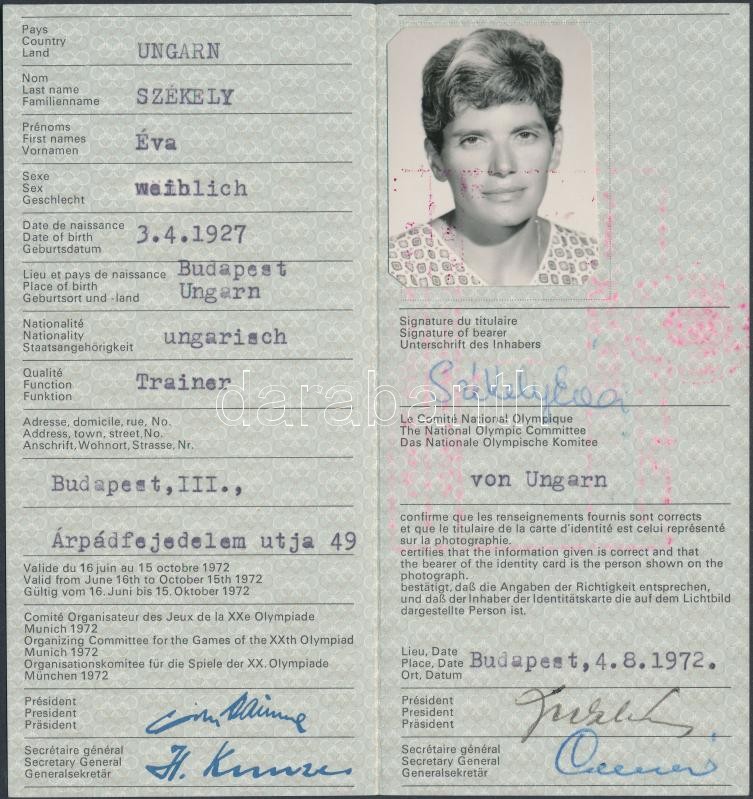 Pays
Country
Land
UNGARN
Nom
Last name
Familienname
SZÉKELY
Prénoms
First names
Vornamen
Éva
Sexe
Sex
Geschlecht
weiblich
Date de naissance
Date of birth
Geburtsdatum
3.4.1927
Lieu et pays de naissance
Place of birth
Geburtsort und -land
Budapest
Ungarn
Nationalité
Nationality
Staatsangehörigkeit
ungarisch
Qualité
Function
Funktion
Trainer
Adresse, domicile, rue, No.
Address, town, street, No.
Anschrift, Wohnort, Strasse, Nr.
Budapest,III.,
Árpádfejedelem utja 49
Valide du 16 juin au 15 octobre 1972
Valid from June 16th to October 15th 1972
Gültig vom 16. Juni bis 15. Oktober 1972
Comité Organisateur des Jeux de la XXe Olympiade
Munich 1972
Organizing Committee for the Games of the XXth Olympiad
Munich 1972
Organisationskomitee für die Spiele der XX. Olympiade
München 1972
Président
President
Präsident
Secrétaire général
Secretary General
Generalsekretär
H. Kunze
Signature du titulaire
Signature of bearer
Unterschrift des Inhabers
Székely Éva
Le Comité National Olympique
The National Olympic Committee
Das Nationale Olympische Komitee
von Ungarn
confirme que les renseignements fournis sont corrects
et que le titulaire de la carte d'identité est celui représenté
sur la photographie.
certifies that the information given is correct and that
the bearer of the identity card is the person shown on the
photograph.
bestätigt, daß die Angaben der Richtigkeit entsprechen,
und daß der Inhaber der Identitätskarte die auf dem Lichtbild
dargestellte Person ist.
Lieu, Date
Place, Date
Ort, Datum
Budapest,4.8.1972.
Président
President
Präsident
Secrétaire général
Secretary General
Generalsekretär
darabanth